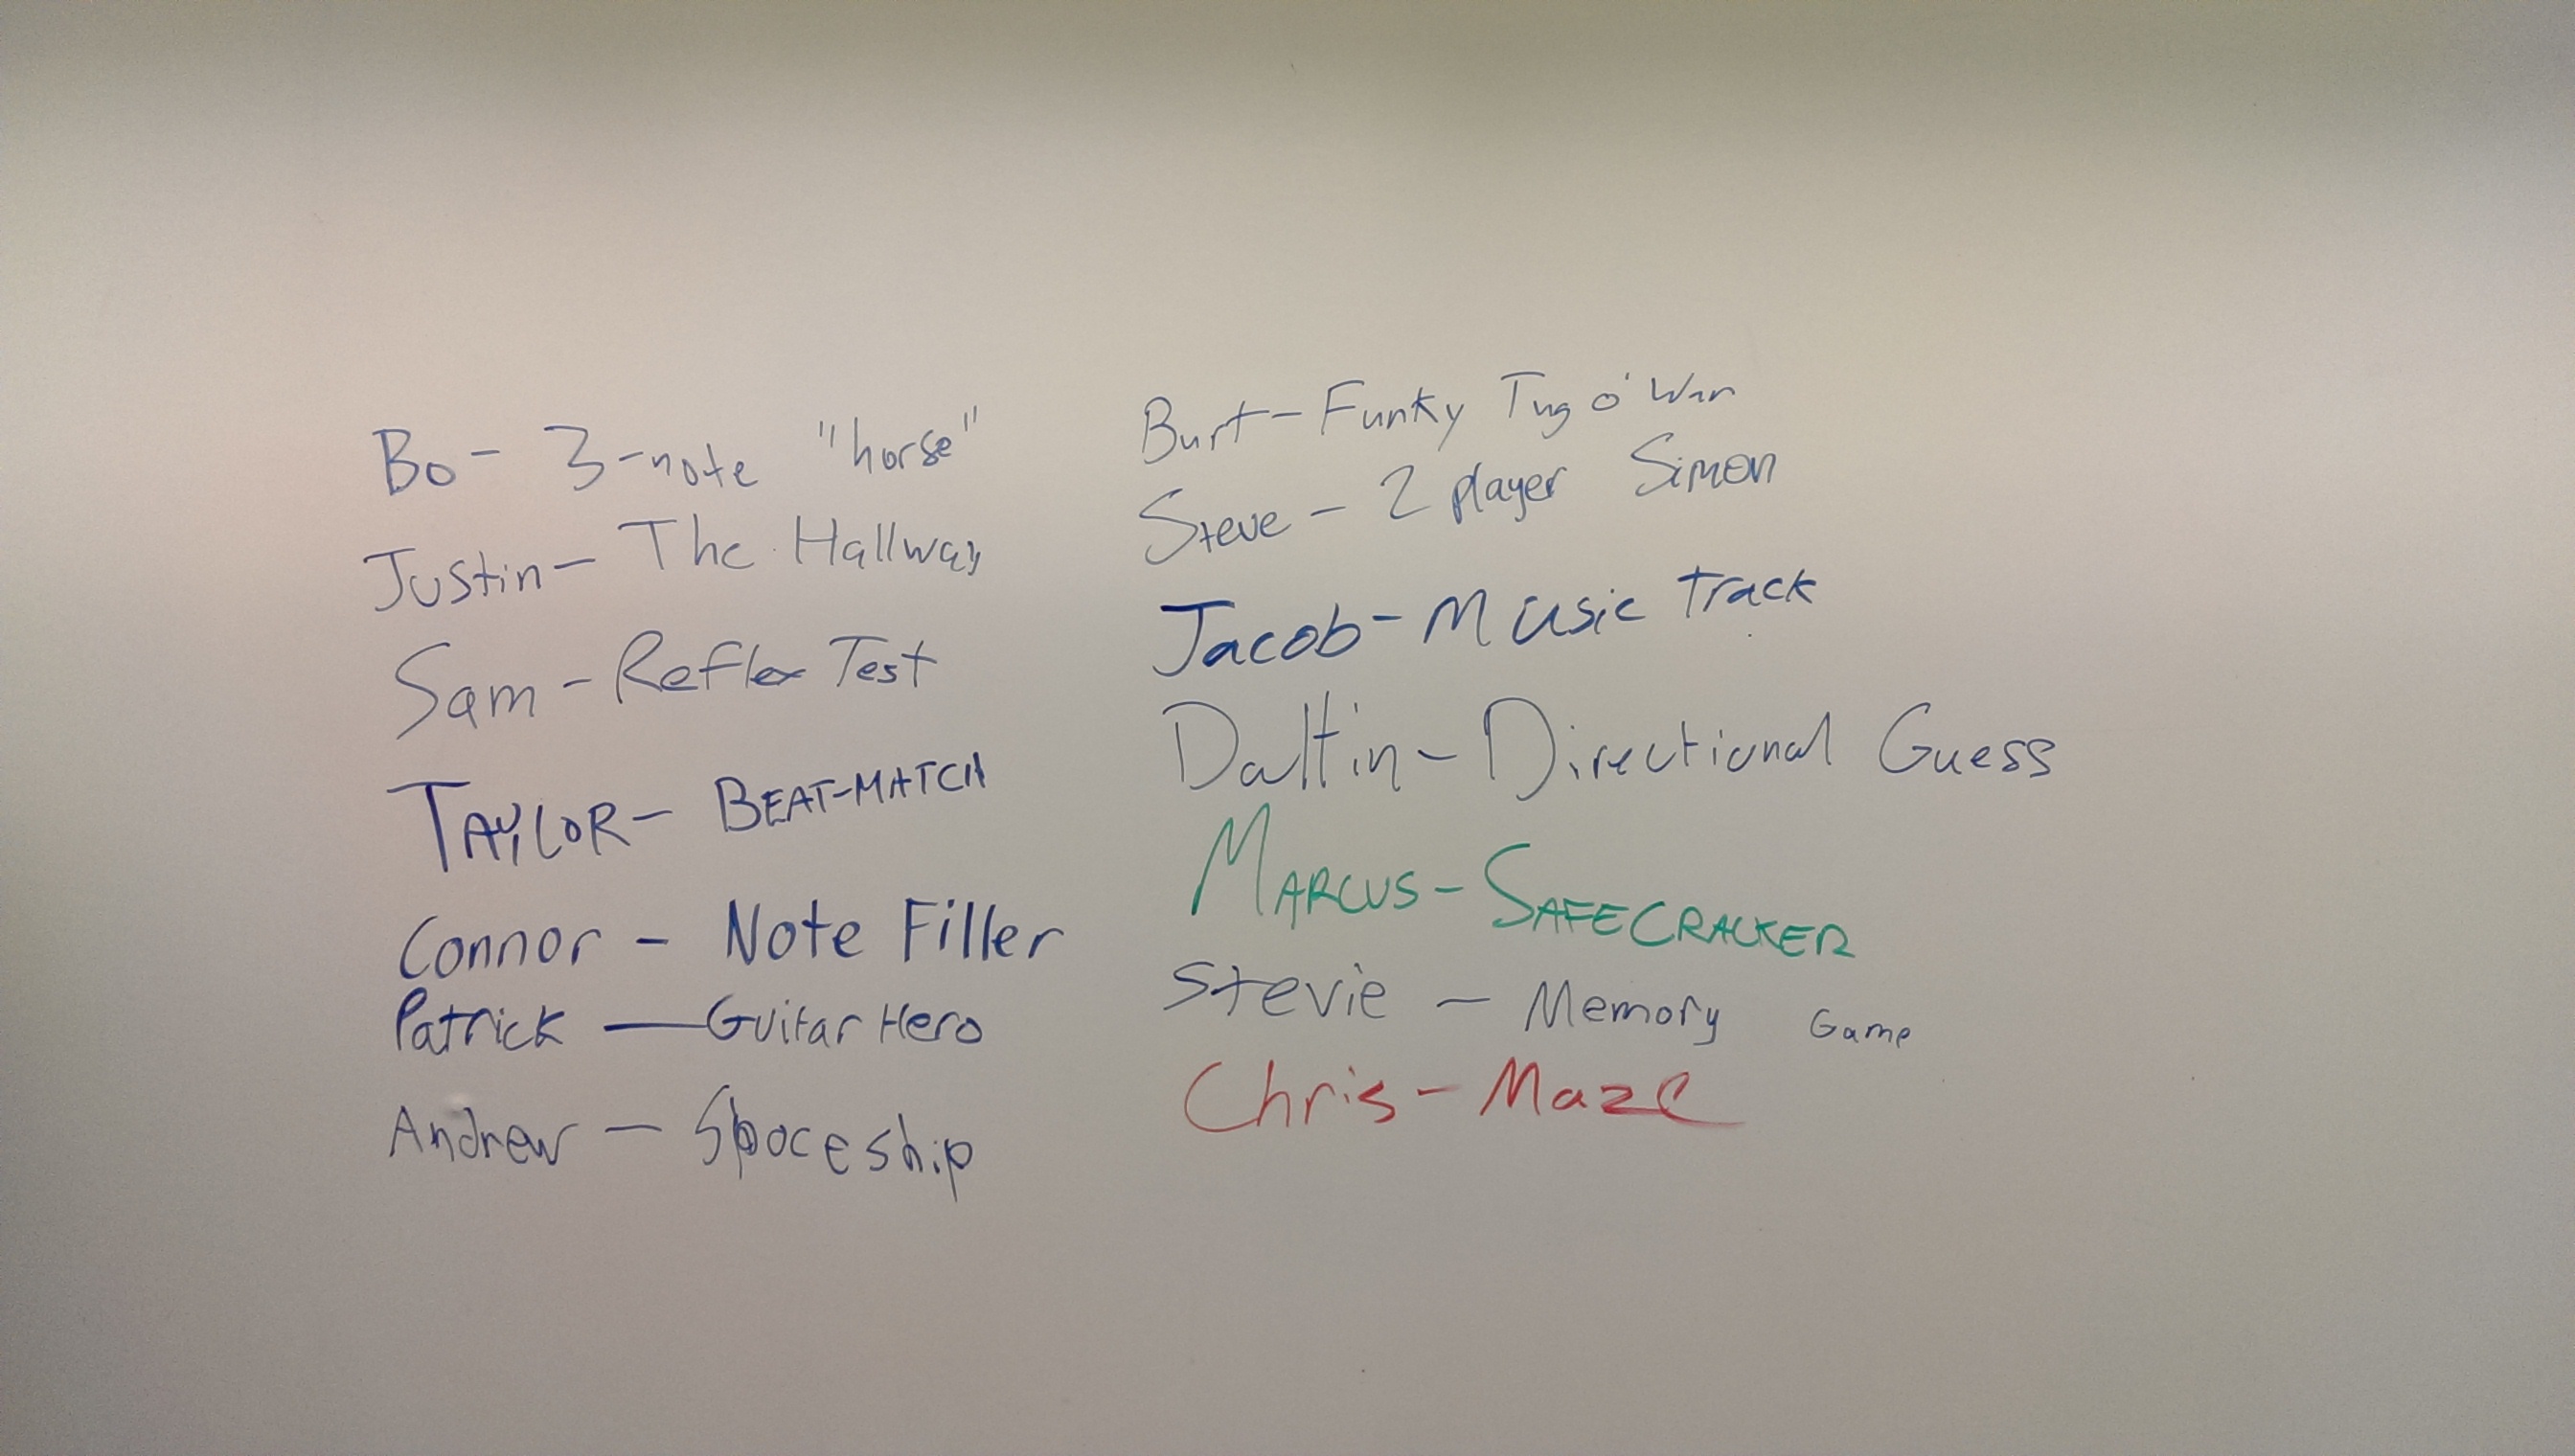 Bo- 3-note "horse"
Justin- The Hallway
Sam- Reflex Test
TAYLOR- BEAT-MATCH
Connor - Note Filler
Patrick — Guitar Hero
Andrew — Spaceship
Burt- Funky Tug o' War
Steve - 2 player Simon
Jacob- Music Track
Daltin- Directional Guess
MARCUS- SAFECRACKER
Stevie - Memory Game
Chris- Maze